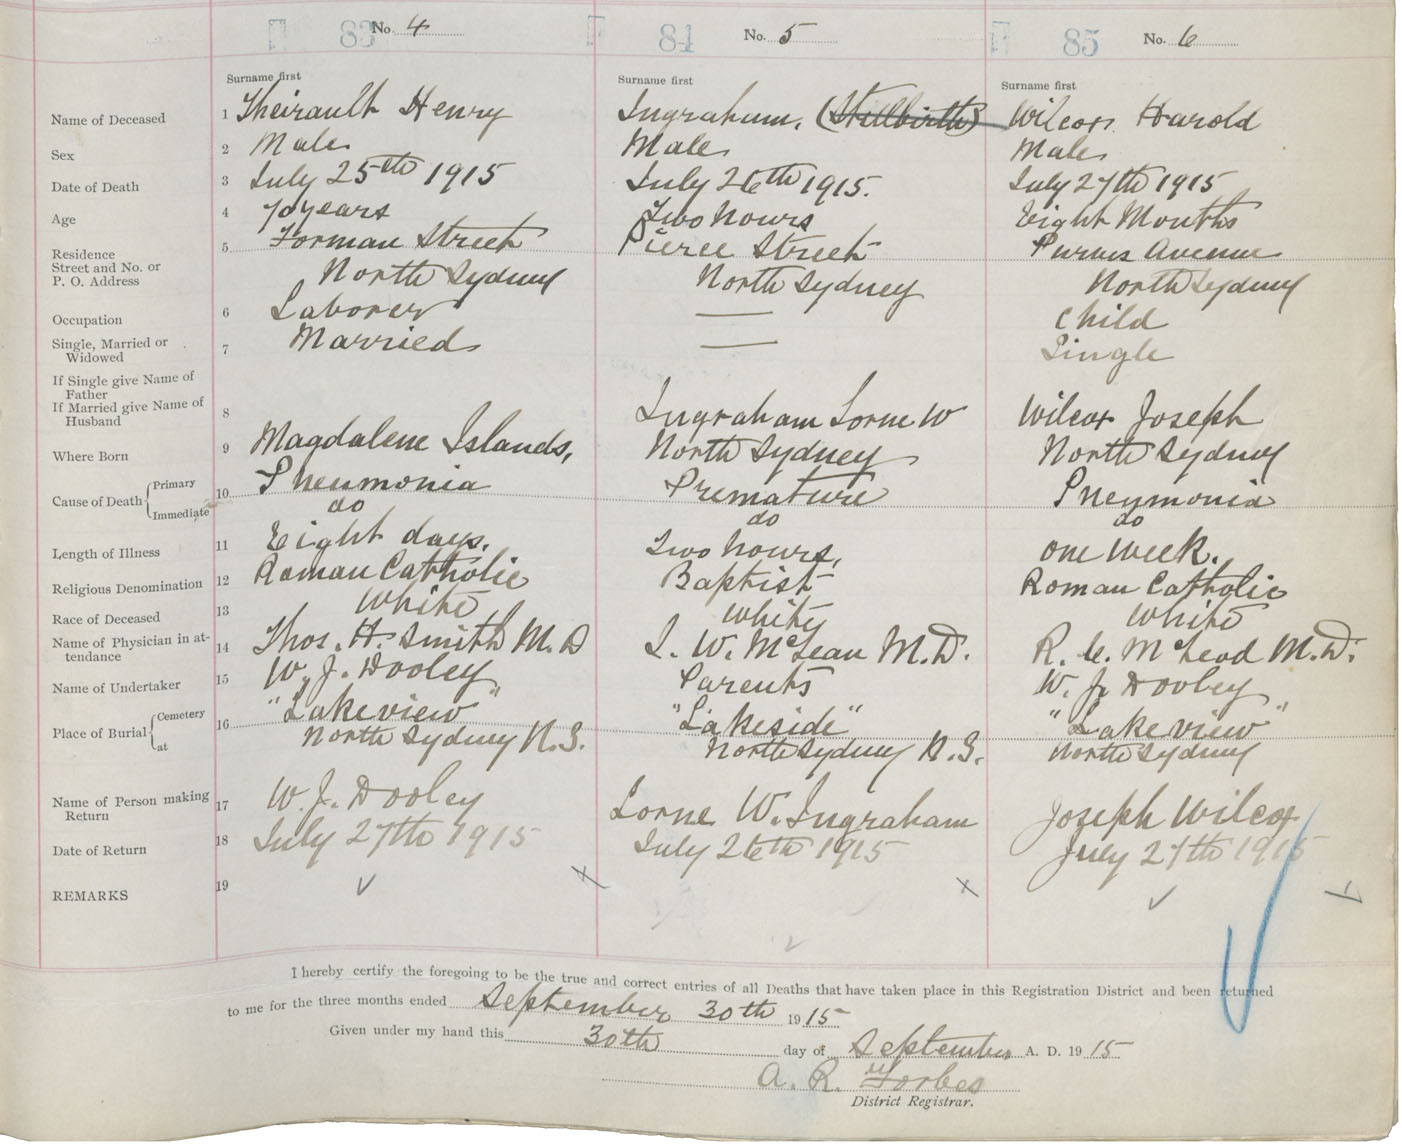 83 No. 4 84 No. 5 85 No. 6
Surname first Surname first Surname first
Name of Deceased 1 Theirault Henry Ingraham, (Stillbirth) Wilcox Harold
Sex 2 Male Male Male
Date of Death 3 July 25th 1915 July 26th 1915. July 27th 1915
Age 4 70 years Two hours Eight Months
Residence 5 Forman Street Pierce Street Purves Avenue
Street and No. or
P. O. Address North Sydney North Sydney North Sydney
Occupation 6 Laborer — Child
Single, Married or
Widowed 7 Married — Single
If Single give Name of
Father
If Married give Name of
Husband 8 Ingraham Lorne W Wilcox Joseph
Where Born 9 Magdalene Islands, North Sydney North Sydney
Cause of Death Primary 10 Pneumonia Premature Pneymonia
Immediate do do do
Length of Illness 11 Eight days. Two hours, one week.
Religious Denomination 12 Roman Catholic Baptist Roman Catholic
Race of Deceased 13 White White White
Name of Physician in at-
tendance 14 Thos. H. Smith M.D L. W. McLean M.D. R. C. McLeod M.D.
Name of Undertaker 15 W. J. Dooley Parents W. J. Dooley
Place of Burial Cemetery 16 "Lakeview" "Lakeside" "Lakeview"
at North Sydney N.S. North Sydney N.S. North Sydney
Name of Person making
Return 17 W. J. Dooley Lorne W. Ingraham Joseph Wilcox
Date of Return 18 July 27th 1915 July 26th 1915 July 27th 1915
REMARKS 19
I hereby certify the foregoing to be the true and correct entries of all Deaths that have taken place in this Registration District and been returned
to me for the three months ended September 30th 1915
Given under my hand this 30th day of September A. D. 1915
A. R. Forbes
District Registrar.